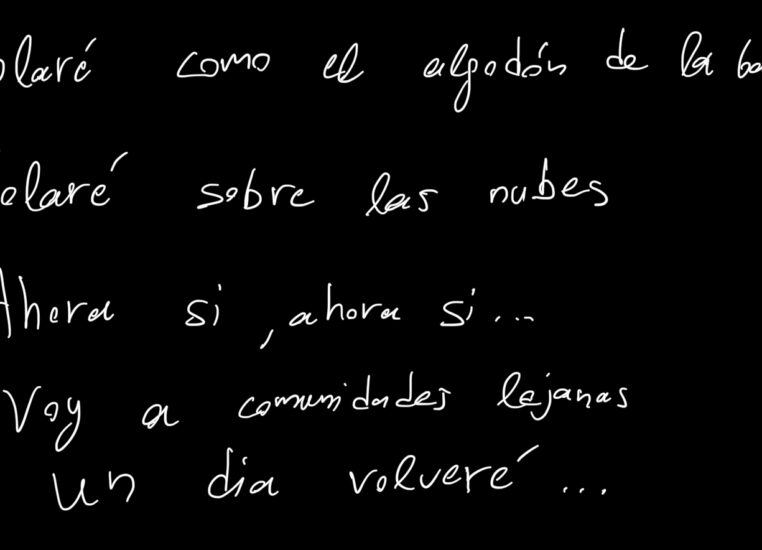 olaré como el algodón de la bo
elaré sobre las nubes
Ahora si, ahora si...
Voy a comunidades lejanas
un dia volveré...